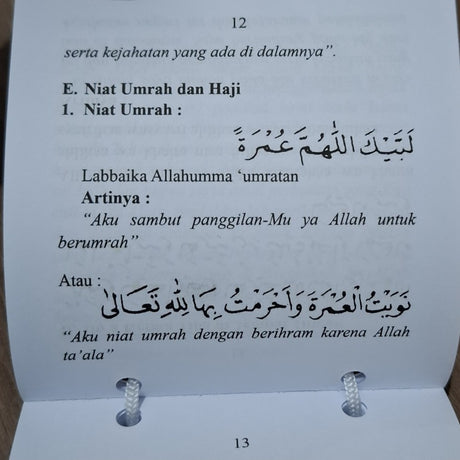 12
serta kejahatan yang ada di dalamnya”.
E. Niat Umrah dan Haji
1. Niat Umrah :
لَبَّيْكَ اللّٰهُمَّ عُمْرَةً
Labbaika Allahumma ‘umratan
Artinya :
“Aku sambut panggilan-Mu ya Allah untuk
berumrah”
Atau :
نَوَيْتُ الْعُمْرَةَ وَاَحْرَمْتُ بِهَا لِلّٰهِ تَعَالٰى
“Aku niat umrah dengan berihram karena Allah
ta’ala”
13